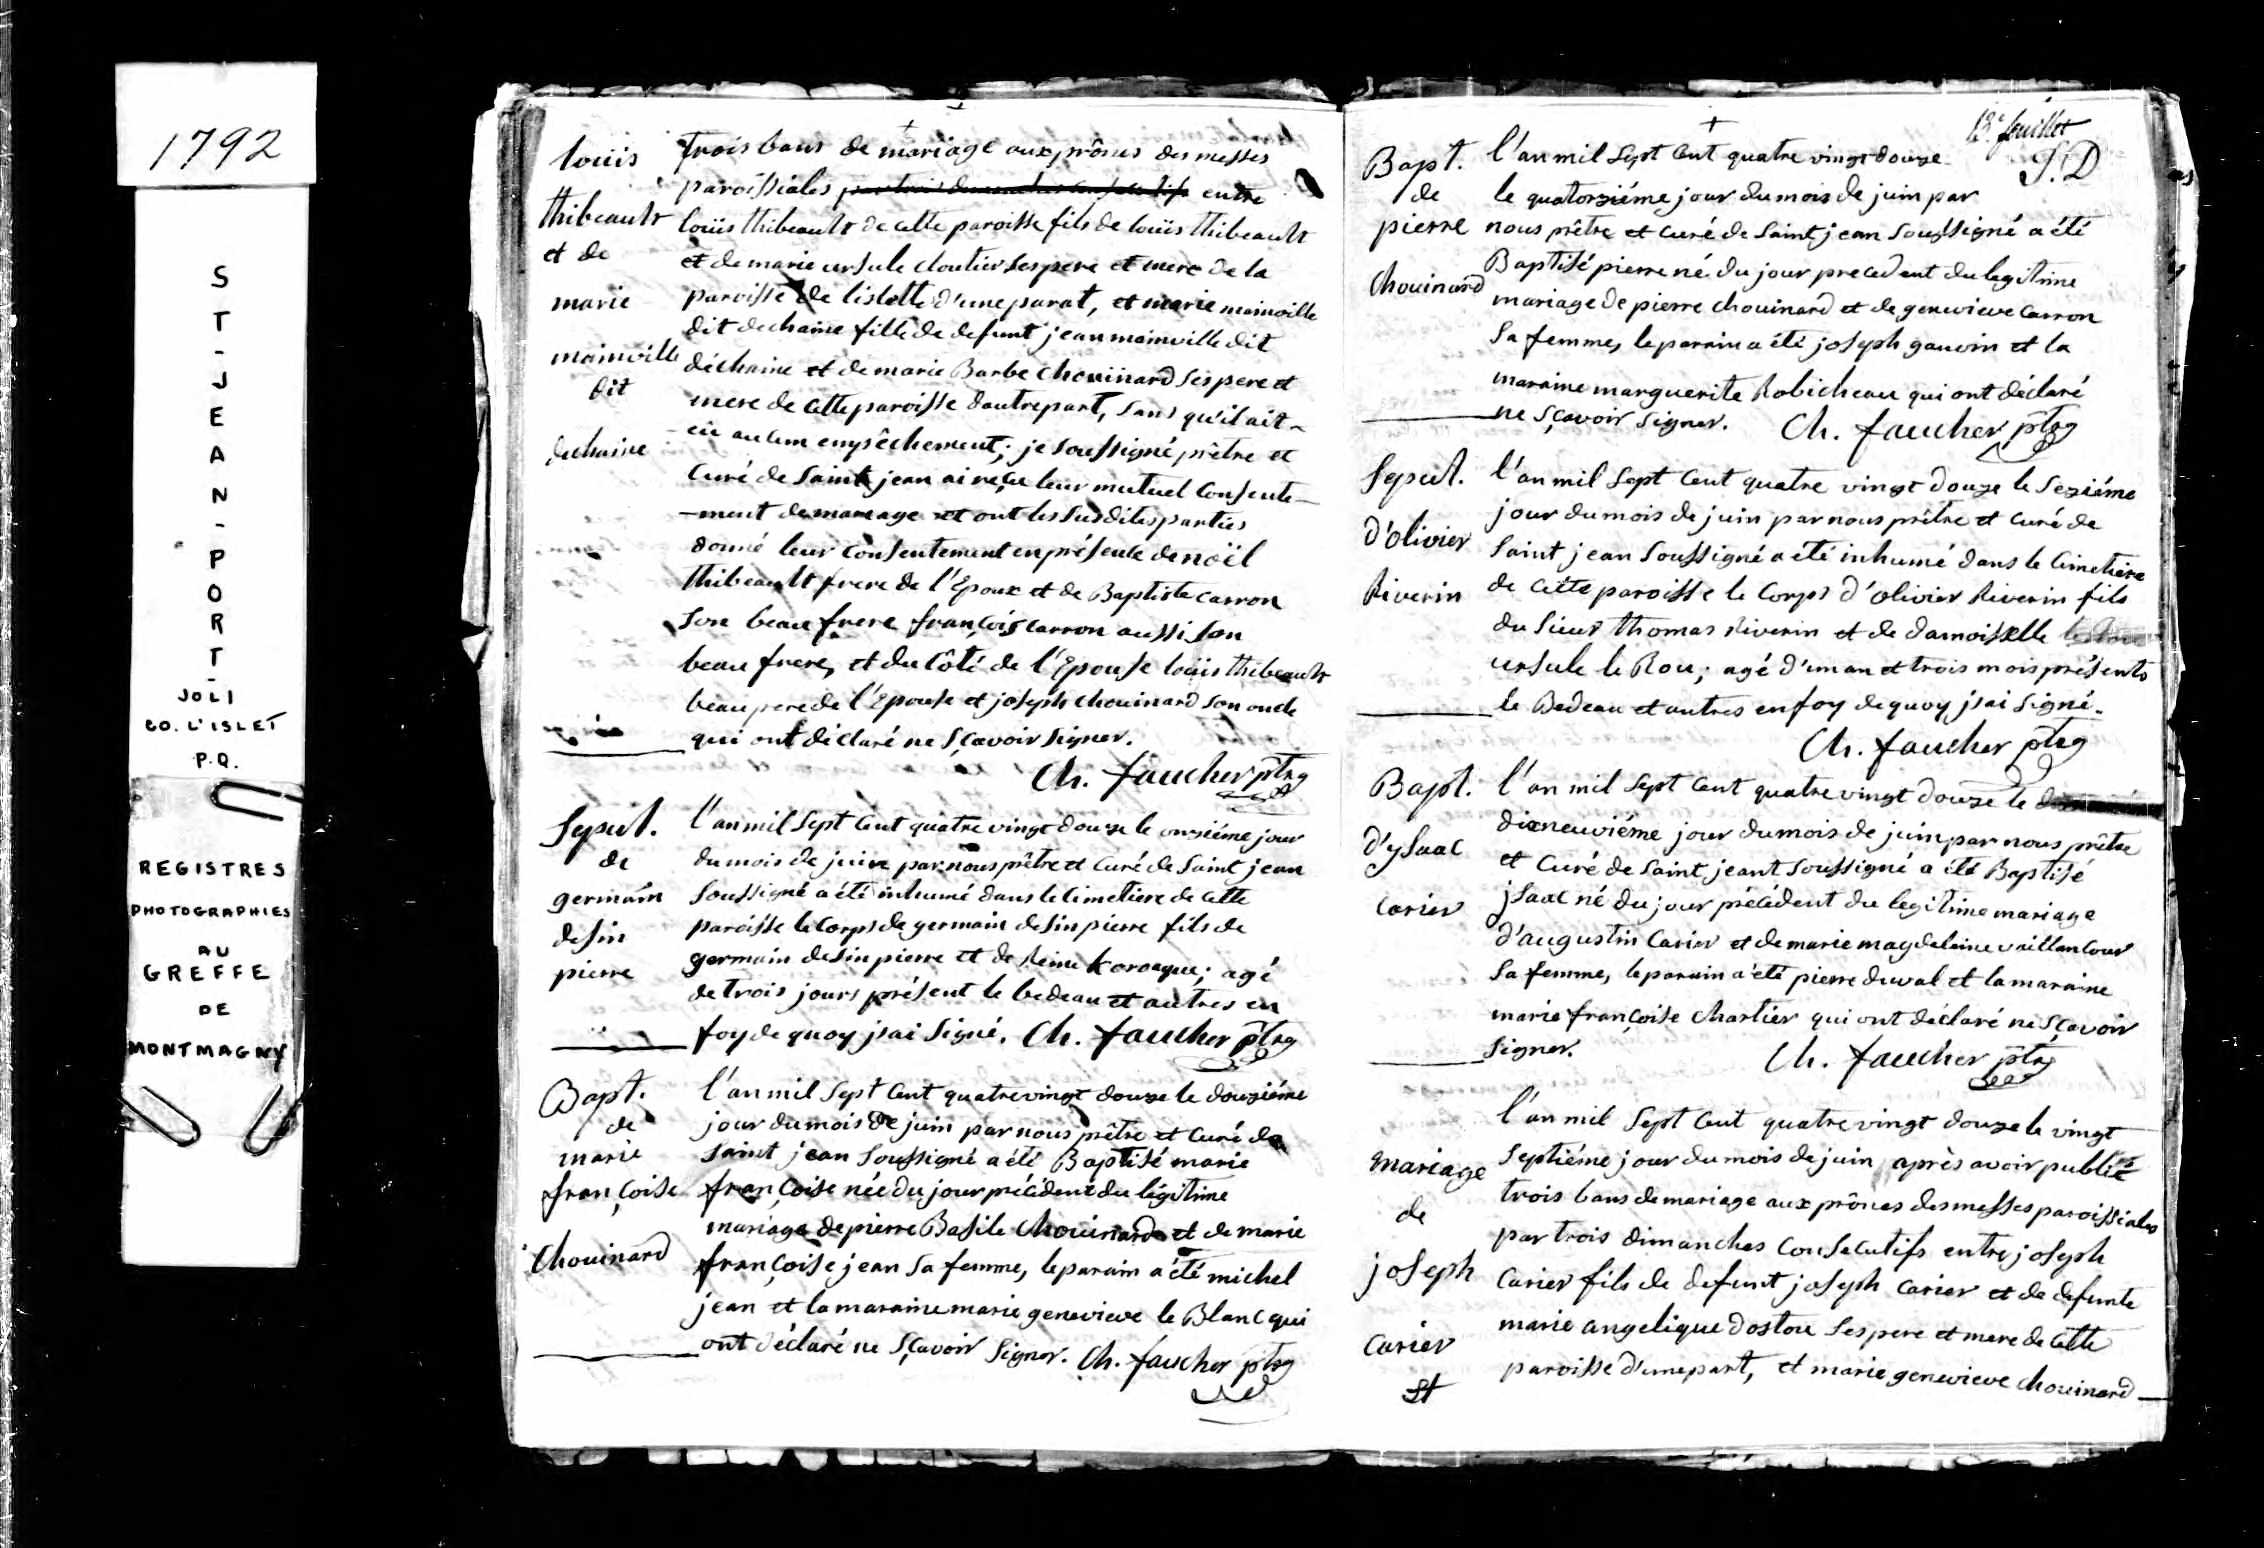 1792
ST-JEAN-PORT-
JOLI
CO. L'ISLET
P.Q.
REGISTRES
PHOTOGRAPHIES
AU
GREFFE
DE
MONTMAGNY
loüis
thibeault
et de
marie
mainville
dit
dechaine
trois bans de mariage aux prônes des messes
paroissiales par trois dimanches consecutifs entre
loüis thibeault de cette paroisse fils de loüis thibeault
et de marie ursule cloutier ses pere et mere de la
paroisse de lislette d'une parat, et marie mainville
dit dechaine fille de defunt jean mainville dit
déchaine et de marie Barbe chouinard ses pere et
mere de cette paroisse dautre part, sans qu'il ait
eü aucun empêchement; je soussigné prêtre et
Curé de Saint jean ai reçu leur mutuel Consente-
-ment de mareage et ont les susdites parties
donné leur Consentement en présence de noël
thibeault frere de l'Epoux et de Baptiste carron
son beau frere françois carron aussi son
beau frere, et du Côté de l'Epouse loüis thibeault
beau pere de l'Epouse et joseph chouinard son oncle
qui ont déclaré ne Sçavoir signer.
Ch. faucher ptrg
Sepul.
de
germain
desin
pierre
l'an mil Sept Cent quatre vingt douze le onziéme jour
du mois de juin par nous prêtre et Curé de Saint jean
Soussigné a été inhumé dans le Cimetiere de Cette
paroisse le Corps de germain desin pierre fils de
germain desin pierre et de Reine Koroaque; agé
de trois jours présent le bedeau et autres en
foy de quoy j'ai Signé. Ch. faucher ptrg
Bapt.
de
marie
françoise
Chouinard
l'an mil Sept Cent quatre vingt douze le douziéme
jour du mois de juin par nous prêtre et Curé de
Saint jean Soussigné a été Baptisé marie
françoise née du jour précédent du légitime
mariage de pierre Basile Chouinard et de marie
françoise jean sa femme, le parain a été michel
jean et la maraine marie genevieve le Blanc qui
ont déclaré ne Sçavoir Signer. Ch. faucher ptrg
13e feuillet
P.D
Bapt.
de
pierre
Chouinard
l'an mil Sept Cent quatre vingt douze
le quatorziéme jour du mois de juin par
nous prêtre et Curé de Saint jean Soussigné a été
Baptisé pierre né du jour precedent du legitime
mariage de pierre chouinard et de genevieve Carron
Sa femme, le parain a été joseph gauvin et la
maraine marguerite Robicheau qui ont déclaré
ne Sçavoir signer. Ch. faucher ptrg
Sepul.
d'olivier
Riverin
l'an mil Sept Cent quatre vingt douze le Seziéme
jour du mois de juin par nous prêtre et Curé de
Saint jean Soussigné a été inhumé dans le Cimetiere
de Cette paroisse le Corps d'olivier Riverin fils
du Sieur thomas Riverin et de damoiselle
ursule le Rou; agé d'un an et trois mois présents
le Bedeau et autres en foy de quoy j'ai Signé.
Ch. faucher ptrg
Bapt.
d'ysaac
Carier
l'an mil Sept Cent quatre vingt douze le
dixneuviéme jour du mois de juin par nous prêtre
et Curé de Saint jeant Soussigné a été Baptisé
jsaac né du jour précédent du legitime mariage
d'augustin Carier et de marie magdeleine vaillancour
Sa femme, le parain a été pierre duval et la maraine
marie françoise Chartier qui ont déclaré ne Sçavoir
Signer. Ch. faucher ptrg
mariage
de
joseph
Carier
et
l'an mil Sept Cent quatre vingt douze le vingt
Septiéme jour du mois de juin après avoir publié
trois bans de mariage aux prônes des messes paroissiales
par trois dimanches Consecutifs entre joseph
Carier fils de defunt joseph Carier et de defunte
marie angelique dostou Ses pere et mere de Cette
paroisse d'une part, et marie genevieve chouinard